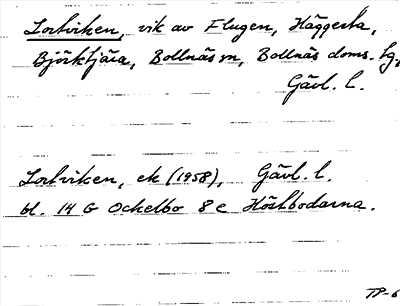 Lortviken, vik av Flugen, Häggesta,
Björktjära, Bollnäs sn, Bollnäs doms. tg,
Gävl. l.
Lortviken, ek (1958), Gävl. l.
bl. 14 G Ockelbo 8e Höstbodarna.
TP-6